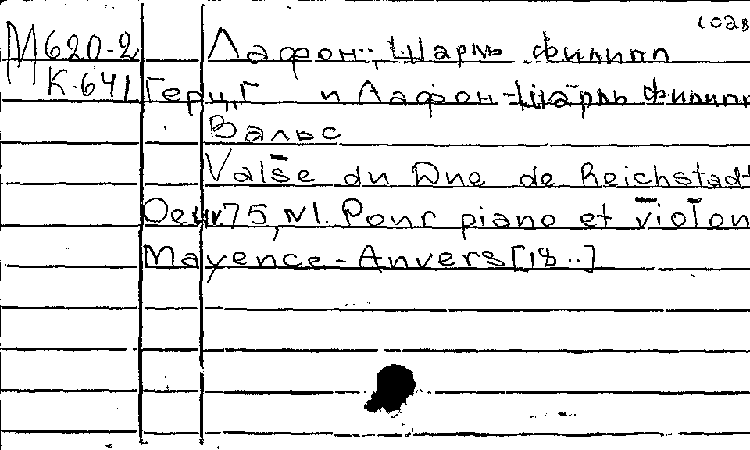 1028
М620-2 Лафон, Шарль Филипп
К-641 Герц, Г и Лафон Шарль Филипп
Вальс
Valse du Duc de Reichstadt
Oeuv. 75, N1. Pour piano et violon
Mayence-Anvers [18..]